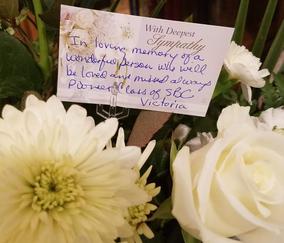 With Deepest
Sympathy
In loving memory of a
wonderful person who will
be loved and missed always
Pioneer Class of SBC
Victoria